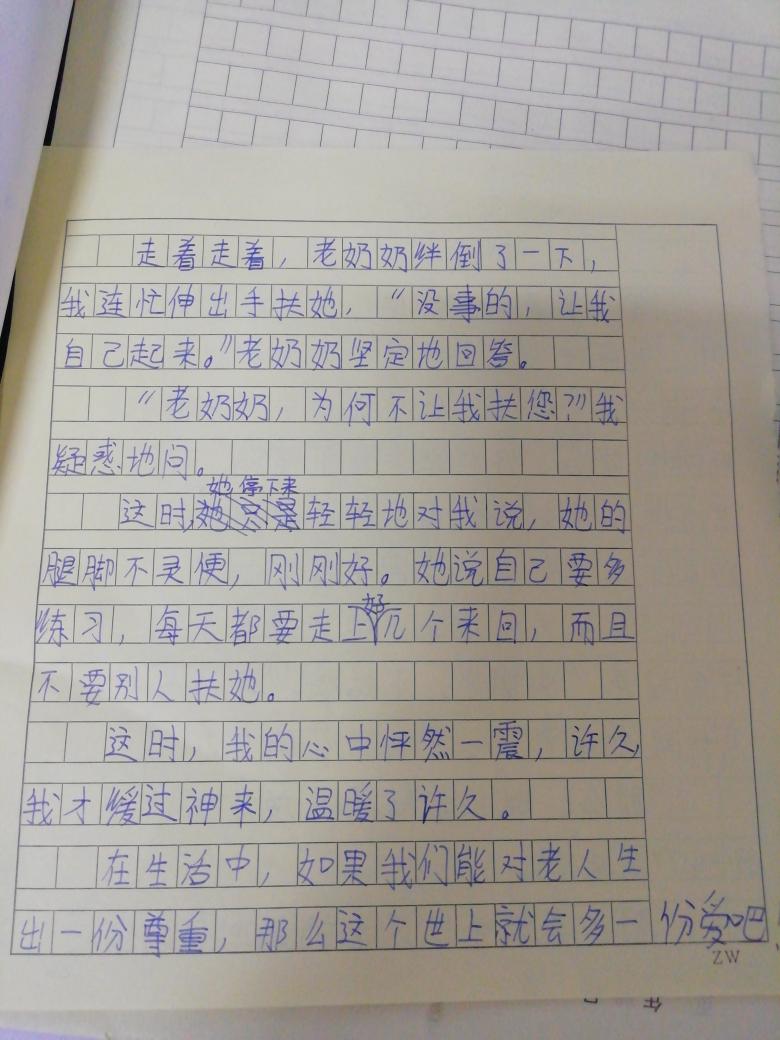 走着走着，老奶奶绊倒了一下，
我连忙伸出手扶她，“没事的，让我
自己起来。”老奶奶坚定地回答。
“老奶奶，为何不让我扶您？”我
疑惑地问。
她停下来
这时，轻轻地对我说，她的
腿脚不灵便，刚刚好。她说自己要多
好
练习，每天都要走上几个来回，而且
不要别人扶她。
这时，我的心中怦然一震，许久，
我才缓过神来，温暖了许久。
在生活中，如果我们能对老人生
出一份尊重，那么这个世上就会多一份爱吧
ZW